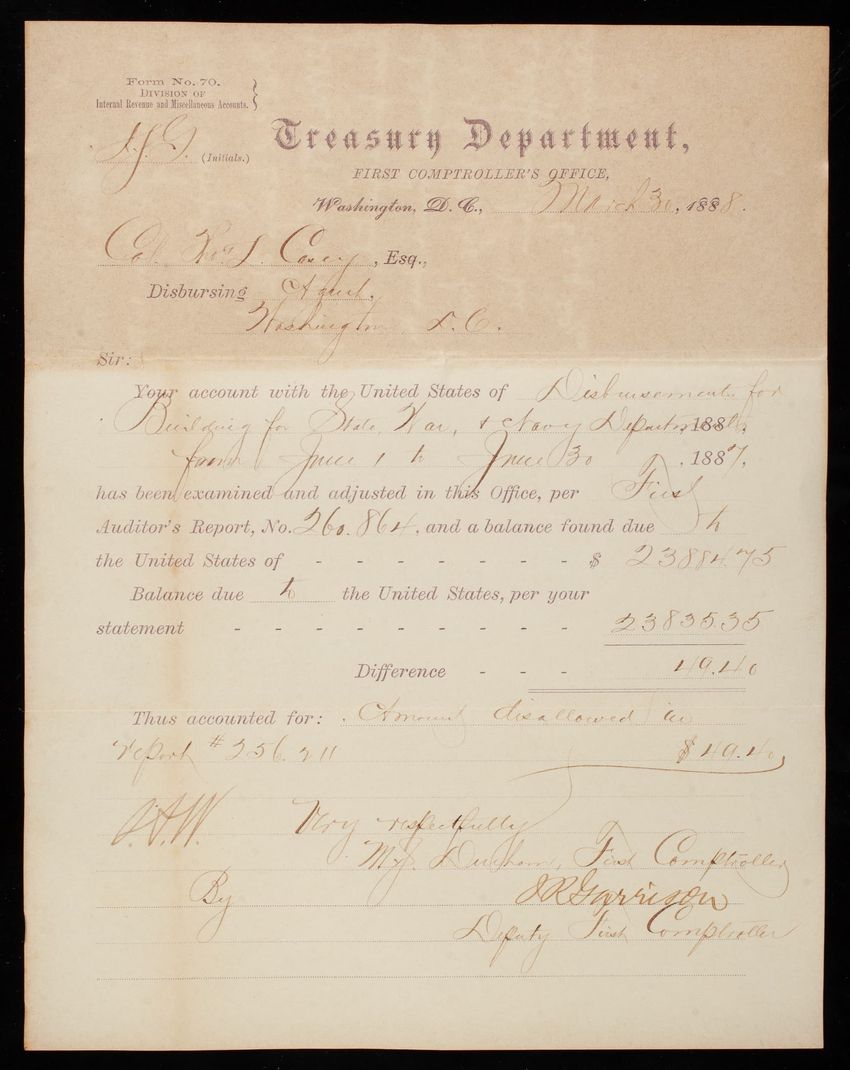 Form No. 70.
DIVISION OF
Internal Revenue and Miscellaneous Accounts.
(Initials.)
Treasury Department,
FIRST COMPTROLLER'S OFFICE,
Washington, D. C., March 30, 1888.
Col. Thos L. Casey, Esq.,
Disbursing Agent,
Washington D. C.
Sir:
Your account with the United States of Disbursements for
Building for State, War, & Navy Departments, 188 ,
from June 1 to June 30, 1887,
has been examined and adjusted in this Office, per First
Auditor's Report, No. 260.864, and a balance found due to
the United States of - - - - - - - $ 23884.75
Balance due to the United States, per your
statement - - - - - - - - - - 23835.35
Difference - - - 49.40
Thus accounted for: Amount disallowed in
report # 256.211 $49.40
J.A.W. Very respectfully
M. J. Durham, First Comptroller
By J R Garrison
Deputy First Comptroller